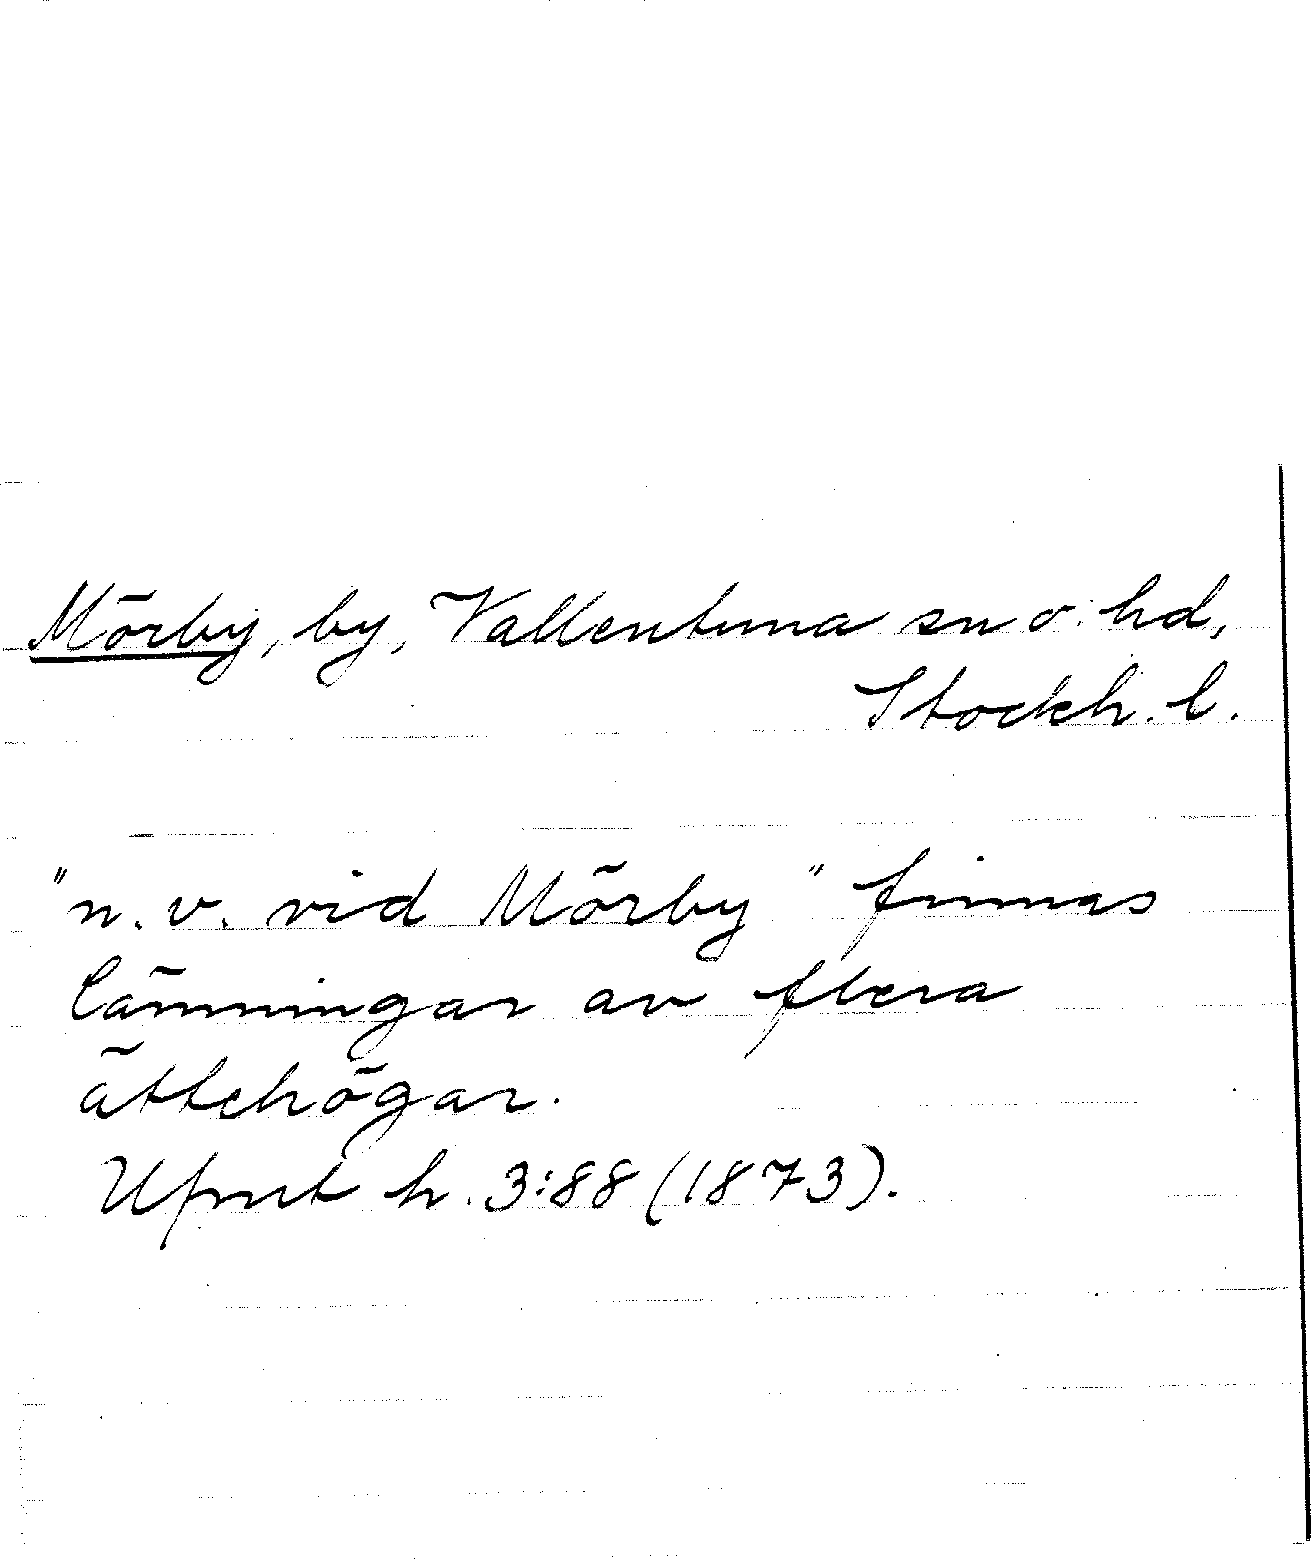 Mörby, by, Vallentuna sn o. hd,
Stockh. l.
"n. v. vid Mörby" finnas
lämningar av flera
ättehögar.
Ufmt h. 3:88 (1873).